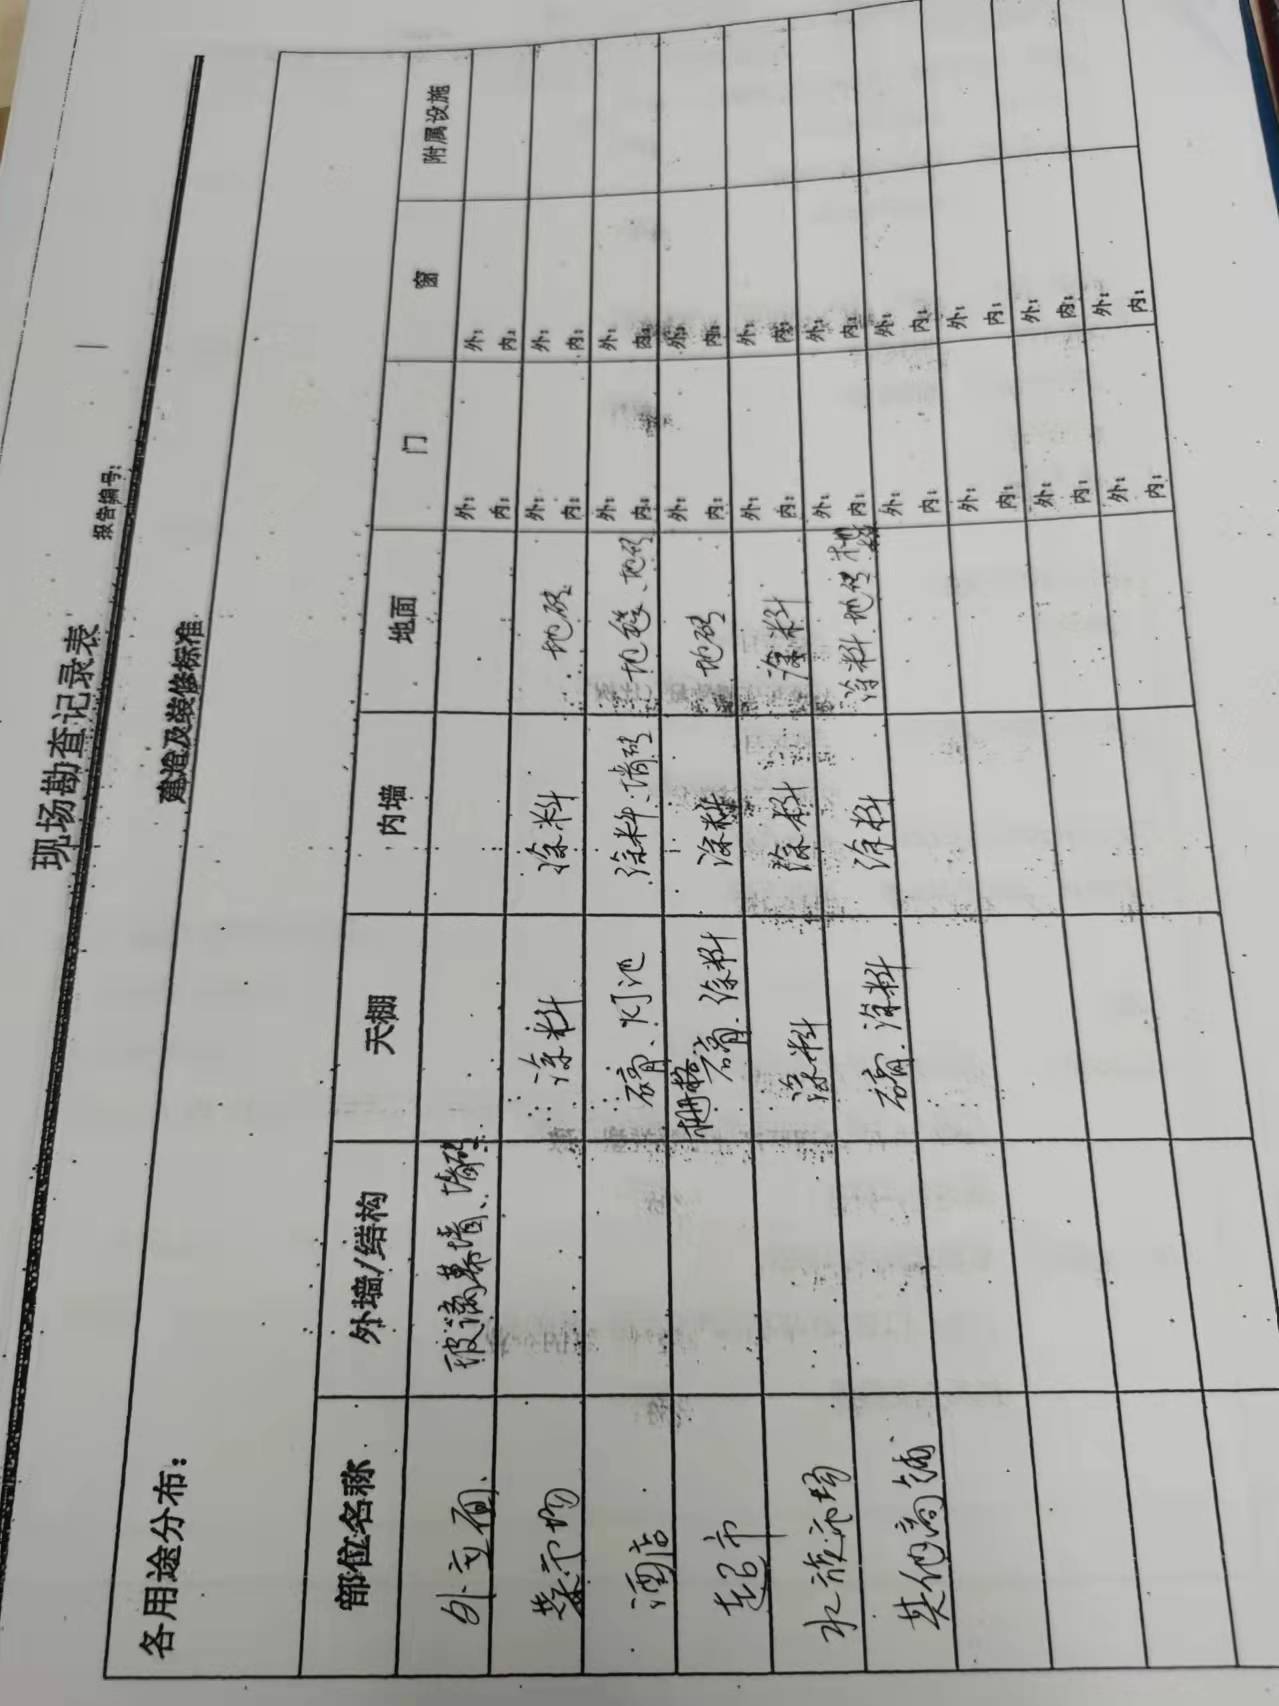 现场勘查记录表
报告编号:
建造及装修标准
各用途分布:
部位名称 外墙/结构 天棚 内墙 地面 门 窗 附属设施
外立面 玻璃幕墙、墙砖 外: 内: 外: 内:
菜市场 涂料 涂料 地砖 外: 内: 外: 内:
酒店 石膏、灯池 涂料、墙砖 地毯、地砖 外: 内: 外: 内:
超市 格栅 石膏、涂料 涂料 地砖 外: 内: 外: 内:
水族市场 涂料 涂料 涂料 外: 内: 外: 内:
其他商铺 石膏、涂料 涂料 涂料 地砖 外: 内: 外: 内:
外: 内: 外: 内:
外: 内: 外: 内:
外: 内: 外: 内: